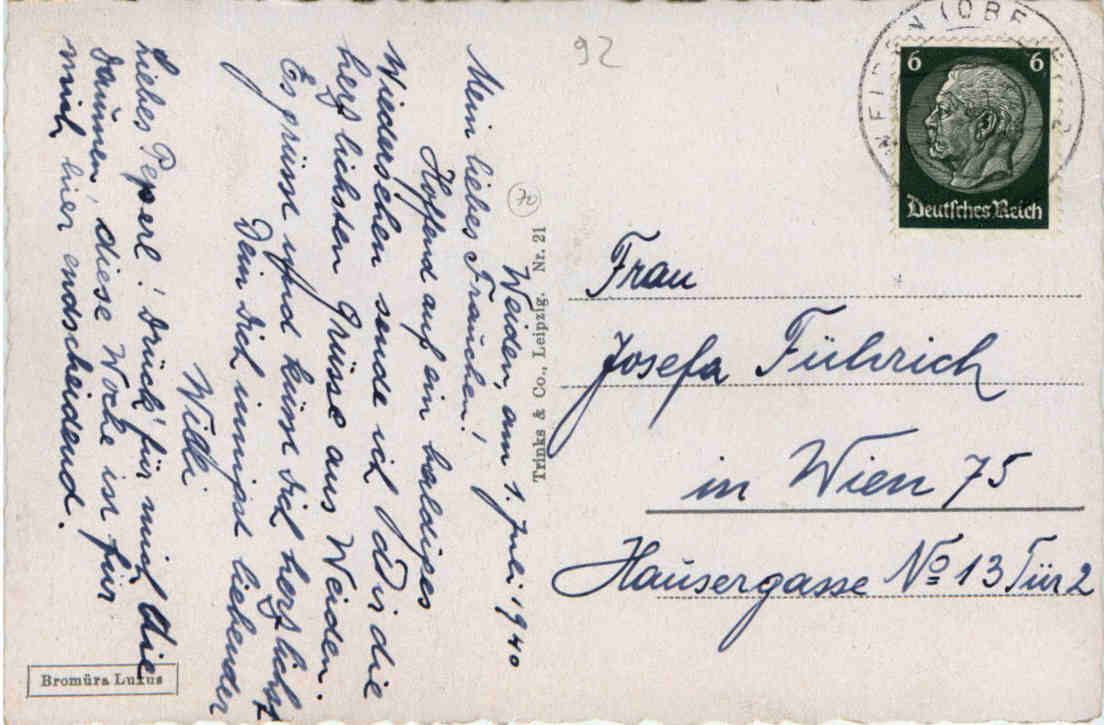 Weiden, am 1. Juli 1940
Mein liebes Frauchen!
Hoffend auf ein baldiges
Wiedersehen sende ich Dir die
herzlichsten Grüsse aus Weiden.
Es grüsst und küsst Dich herzlichst
Dein Dich innigst liebender
Willi
Liebes Peperl! Drück' für mich die
Daumen, diese Woche ist für
mich hier endscheidend.
Bromüra Luxus
92
70
Trinks & Co., Leipzig. Nr. 21
WEIDEN (OBERPF
6 6
Deutsches Reich
Frau
Josefa Führich
in Wien 75
Hausergasse No 13 Tür 2